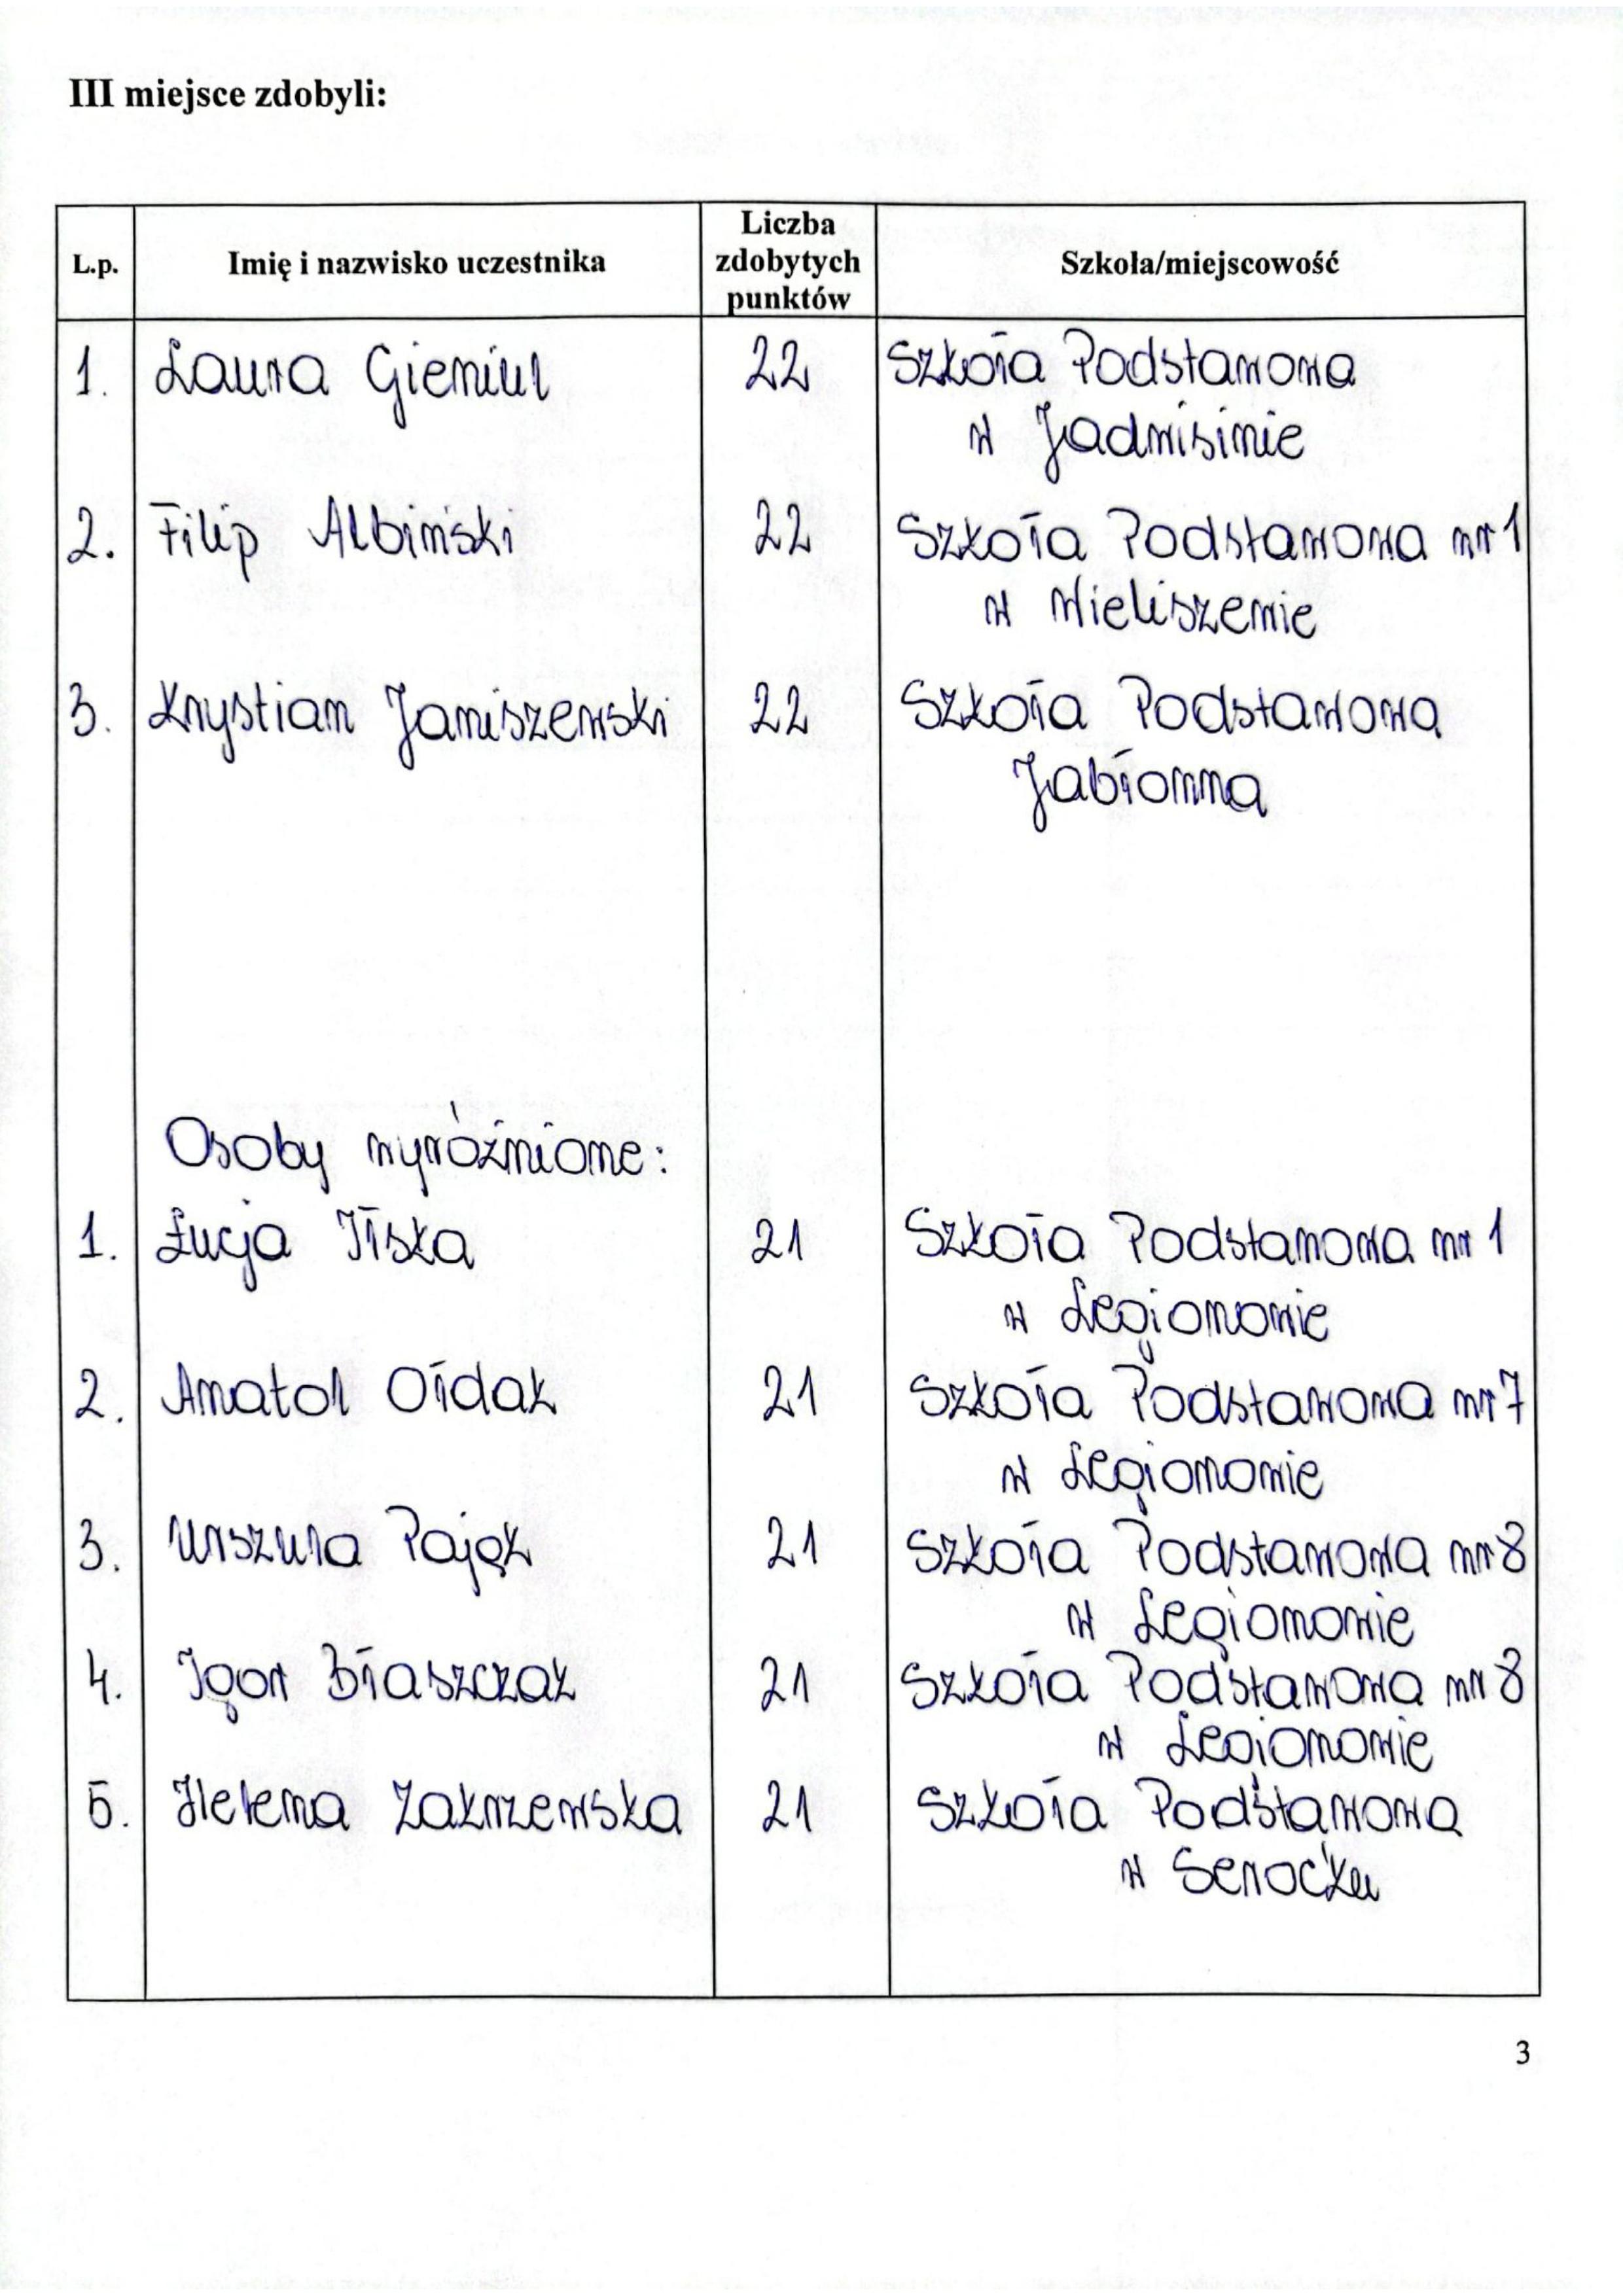 III miejsce zdobyli:
L.p. Imię i nazwisko uczestnika Liczba zdobytych punktów Szkoła/miejscowość
1. Laura Gieniul 22 Szkoła Podstawowa
w Jadwisinie
2. Filip Albiński 22 Szkoła Podstawowa nr 1
w Wieliszewie
3. Krystian Janiszewski 22 Szkoła Podstawowa
Jabłonna
Osoby wyróżnione:
1. Łucja Iłska 21 Szkoła Podstawowa nr 1
w Legionowie
2. Anatol Ołdak 21 Szkoła Podstawowa nr 7
w Legionowie
3. Urszula Pająk 21 Szkoła Podstawowa nr 8
w Legionowie
4. Igor Błaszczak 21 Szkoła Podstawowa nr 8
w Legionowie
5. Helena Zakrzewska 21 Szkoła Podstawowa
w Serocku
3